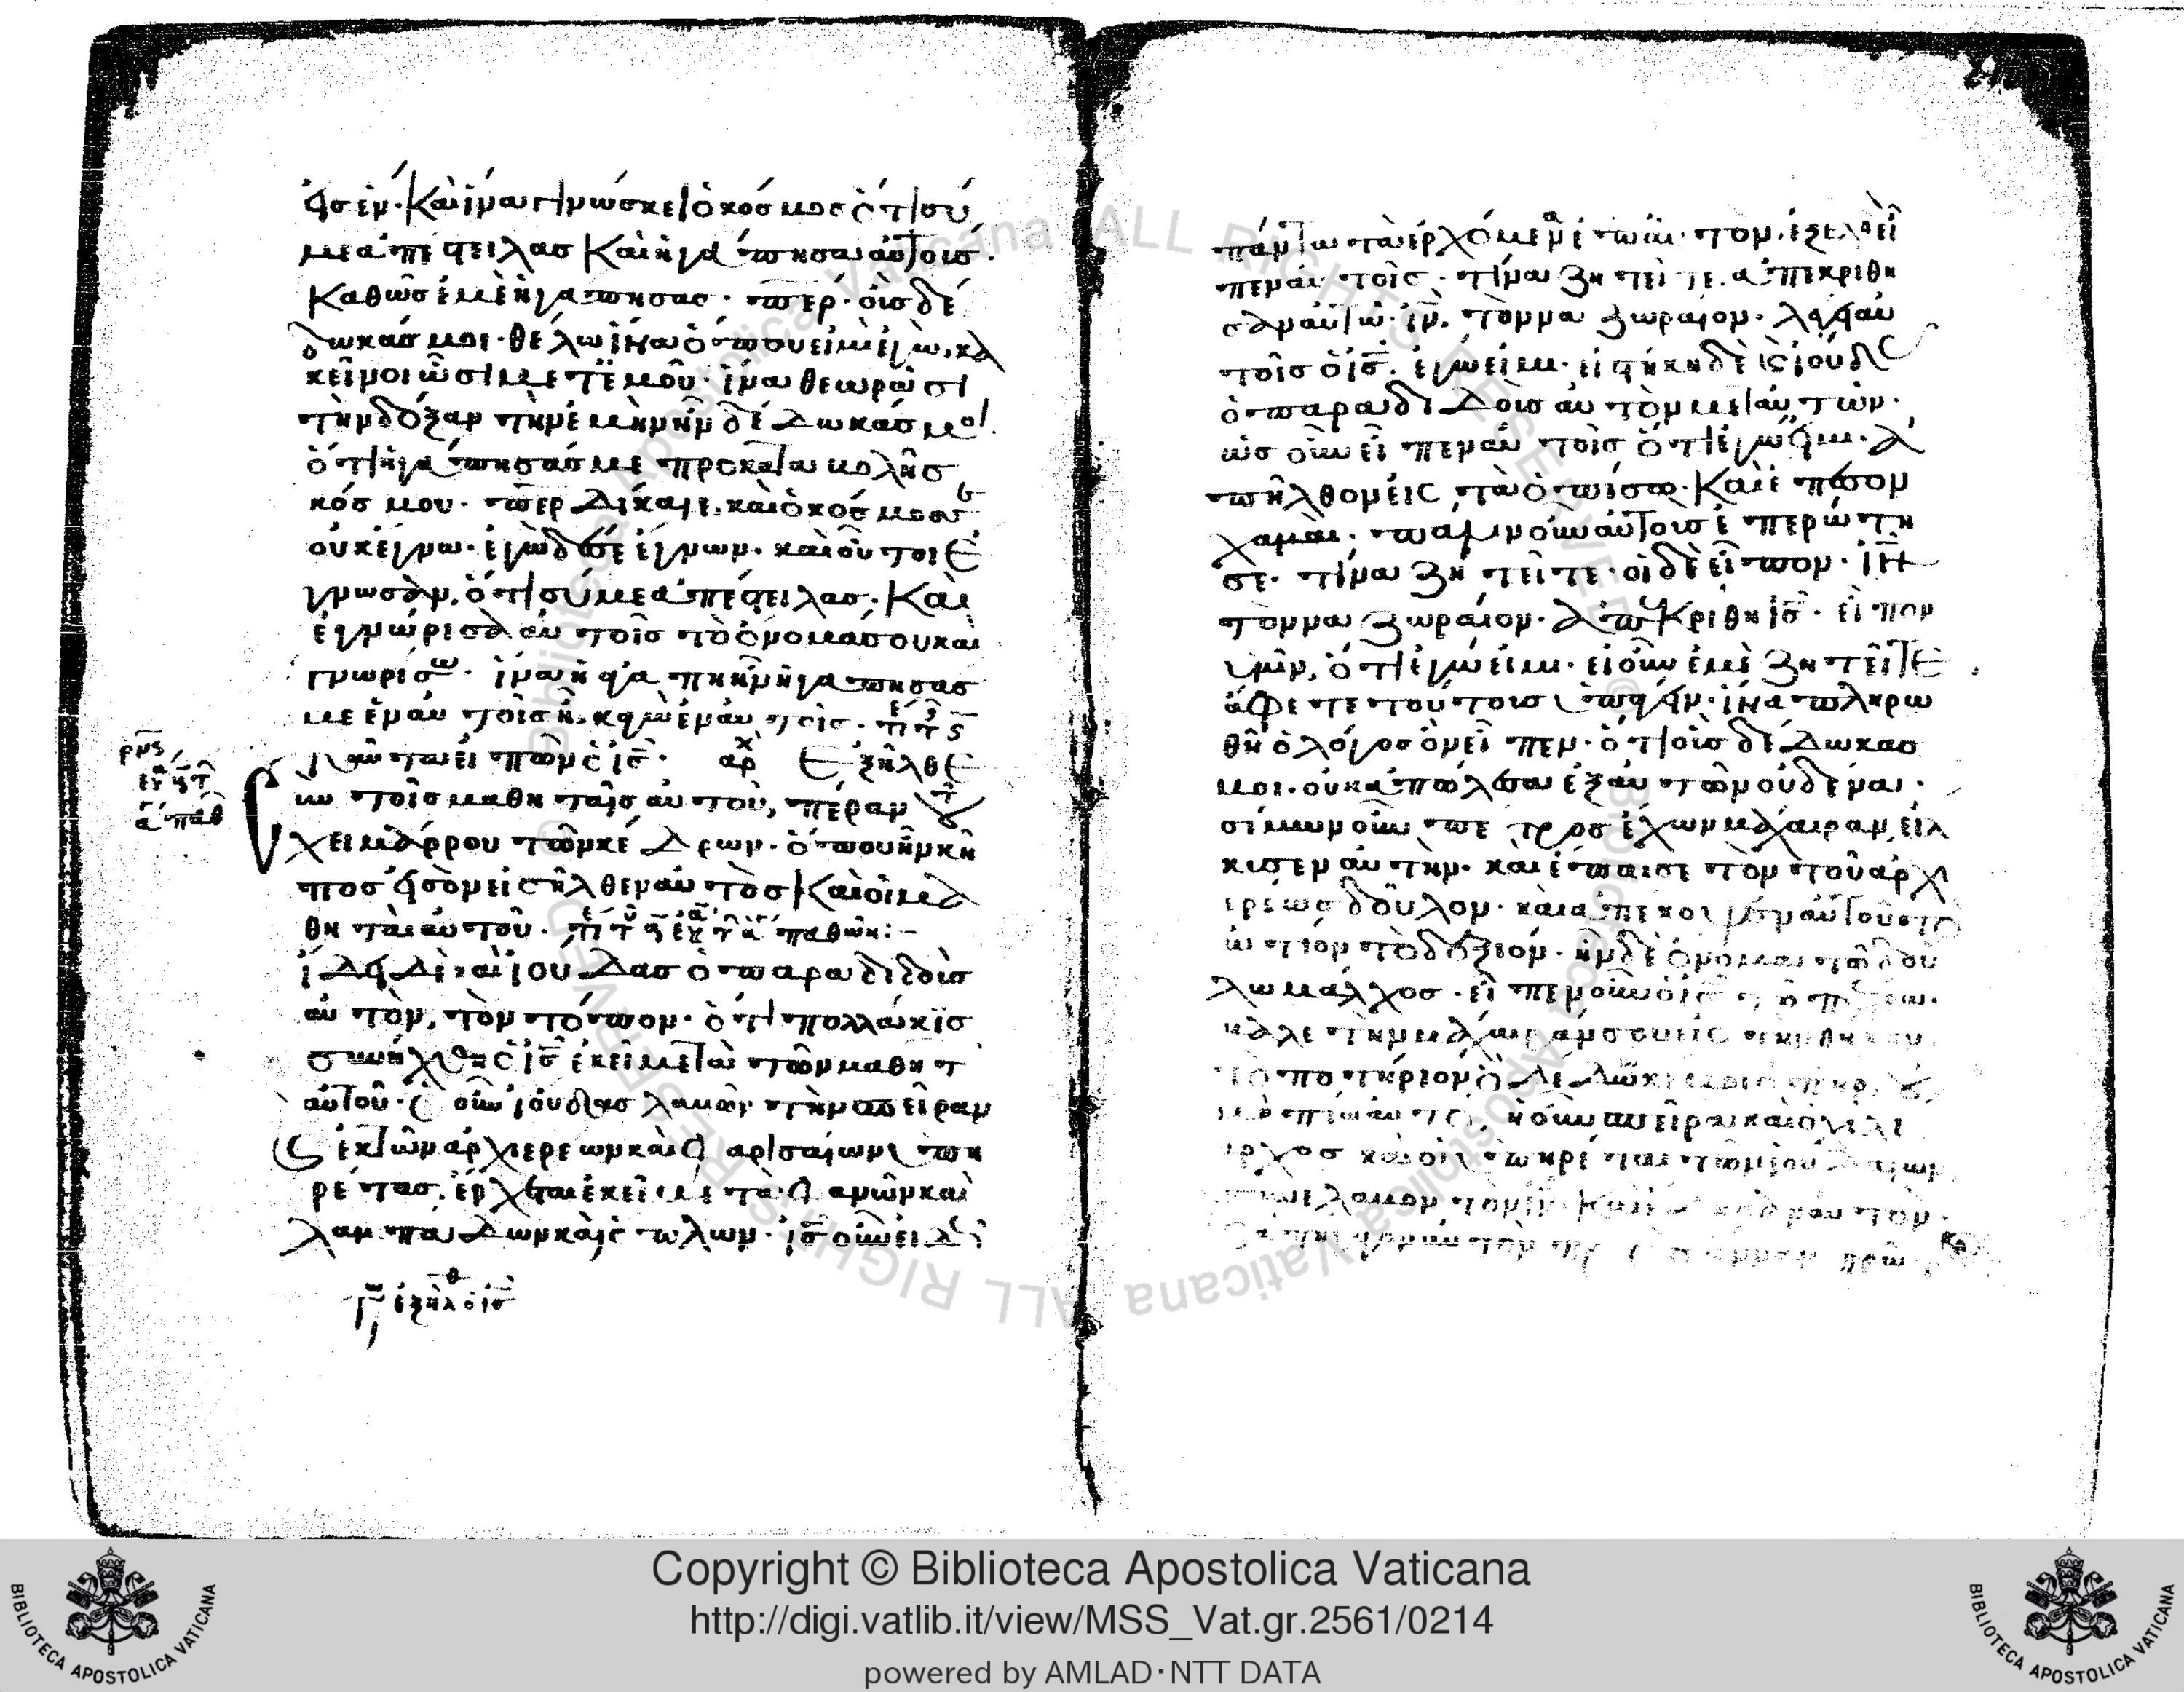 εἰς ἕν· Καὶ ἵνα γινώσκει ὁ κόσμος ὅτι σύ
με ἀπέστειλας Καὶ ἠγάπησα αὐτούς·
Καθὼς ἐμὲ ἠγάπησας· περ· οὓς δέ
δωκάς μοι· θέλω ἵνα ὅπου εἰμὶ ἐγὼ, κἀ
κεῖνοι ὦσι μετ' ἐμοῦ· ἵνα θεωρῶσι
τὴν δόξαν τὴν ἐμὴν ἣν δέδωκάς μοι
ὅτι ἠγάπησάς με προ καταβολῆς
κόσμου· περ δίκαιε, καὶ ὁ κόσμος σε
οὐκ ἔγνω· ἐγὼ δέ σε ἔγνων· καὶ οὗτοι ἔ
γνωσαν, ὅτι σύ με ἀπέστειλας· Καὶ
ἐγνώρισα αὐτοῖς τὸ ὄνομά σου καὶ
γνωρίσω· ἵνα ἡ ἀγάπη ἣν ἠγάπησας
με ἐν αὐτοῖς ᾖ, κἀγὼ ἐν αὐτοῖς·
ταῦτα εἰπὼν ὁ ις· αρχ Ἐξῆλθε
σὺν τοῖς μαθηταῖς αὐτοῦ, πέραν τοῦ
χειμάρρου τῶν κέδρων· ὅπου ἦν κῆ
πος εἰς ὃν εἰσῆλθεν αὐτὸς Καὶ οἱ μα
θηταὶ αὐτοῦ·
ᾔδει δὲ καὶ ἰούδας ὁ παραδιδοὺς
αὐτὸν, τὸν τόπον· ὅτι πολλάκις
συνήχθη ὁ ις ἐκεῖ μετὰ τῶν μαθητ
αὐτοῦ· ὁ οὖν ἰούδας λαβὼν τὴν σπεῖραν
καὶ ἐκ τῶν ἀρχιερέων καὶ φαρισαίων ὑπη
ρέτας, ἔρχεται ἐκεῖ μετὰ φανῶν καὶ
λαμπάδων καὶ ὅπλων· ις οὖν εἰδὼ
ἐξῆλθ ὁ ις
πάντα τὰ ἐρχόμενα ἐπ' αὐτὸν, ἐξελθ εἶ
πεν αὐτοῖς· τίνα ζητεῖτε, ἀπεκρίθη
σαν αὐτῷ· ιν, τὸν ναζωραῖον· λέγει αὐ
τοῖς ὁ ις· ἐγώ εἰμι· εἱστήκη δὲ καὶ ἰούδας
ὁ παραδιδοὺς αὐτὸν μετ' αὐτῶν·
ὡς οὖν εἶπεν αὐτοῖς ὅτι ἐγώ εἰμι· ἀ
πῆλθον εἰς τὰ ὀπίσω· Καὶ ἔπεσον
χαμαί· πάλιν οὖν αὐτοὺς ἐπερώτη
σε· τίνα ζητεῖτε· οἱ δὲ εἶπον· ιν
τὸν ναζωραῖον· ἀπεκρίθη ις· εἶπον
ὑμῖν, ὅτι ἐγώ εἰμι· εἰ οὖν ἐμὲ ζητεῖτε
ἄφετε τούτους ὑπάγειν· ἵνα πληρω
θῇ ὁ λόγος ὃν εἶπεν· ὅτι οὓς δέδωκας
μοι· οὐκ ἀπώλεσα ἐξ αὐτῶν οὐδένα·
σίμων οὖν πέτρος ἔχων μάχαιραν, εἵλ
κισεν αὐτὴν· καὶ ἔπαισε τὸν τοῦ ἀρχ
ιερέως δοῦλον· καὶ ἀπέκοψεν αὐτοῦ τὸ
ὠτίον τὸ δεξιόν· ἦν δὲ ὄνομα τῷ δού
λω μάλχος· εἶπεν οὖν ὁ ις τῷ πέτρω·
βάλε τὴν μάχαιράν σου εἰς τὴν θήκην
τὸ ποτήριον ὃ δέδωκε
ἡ οὖν σπεῖρα καὶ ὁ χιλί
αρχος καὶ οἱ ὑπηρέται τῶν ἰουδαίων
συνέλαβον τὸν ιν· Καὶ ἔδησαν αὐτὸν·
Copyright © Biblioteca Apostolica Vaticana
http://digi.vatlib.it/view/MSS_Vat.gr.2561/0214
powered by AMLAD·NTT DATA
BIBLIOTECA APOSTOLICA VATICANA
BIBLIOTECA APOSTOLICA VATICANA